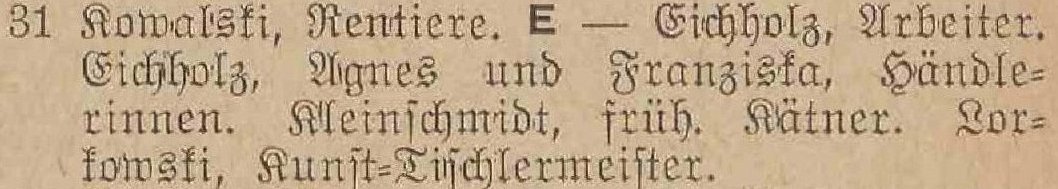 31 Kowalski, Rentiere. E — Eichholz, Arbeiter.
Eichholz, Agnes und Franziska, Händle=
rinnen. Kleinschmidt, früh. Kätner. Lor=
kowski, Kunst=Tischlermeister.